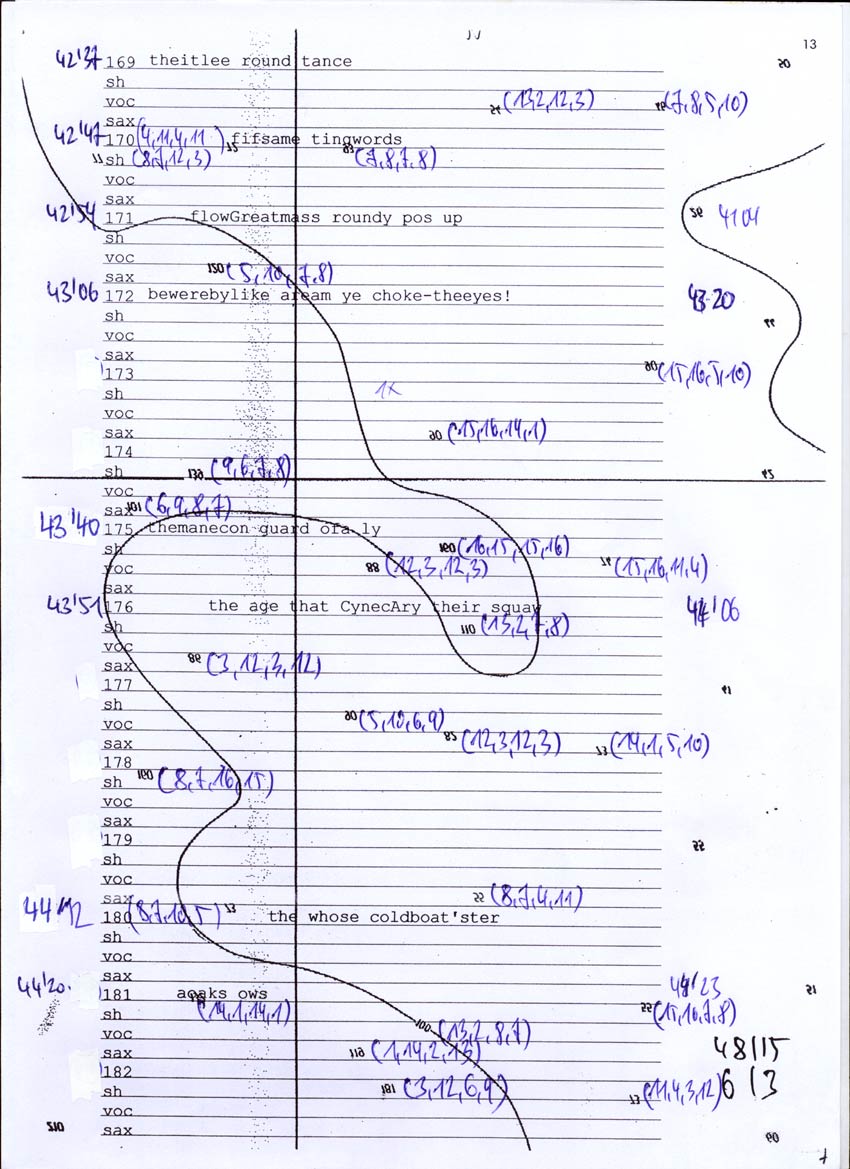 13
42'37 169 theitlee round tance
sh
voc (13,2,12,3) (7,8,5,10)
sax
42'47 170 (4,11,4,11) fifsame tingwords
sh (8,7,12,3) (7,8,7,8)
voc
sax
42'54 171 flowGreatmass roundy pos up 41 04
sh
voc
sax (5,10,7,8)
43'06 172 bewerebylike aream ye choke-theeyes! 43-20
sh
voc
sax
173 (15,16,5,10)
sh 1x
voc
sax (15,16,14,1)
174
sh (9,6,7,8)
voc
sax (6,9,8,7)
43'40 175 themanecon guard ofa ly
sh (16,15,15,16)
voc (12,3,12,3) (15,16,11,4)
sax
43'51 176 the age that CynecAry their squaw 44'06
sh (13,2,7,8)
voc
sax (3,12,3,12)
177
sh
voc (5,10,6,9)
sax (12,3,12,3) (14,1,5,10)
178
sh (8,7,16,15)
voc
sax
179
sh
voc
sax (8,7,4,11)
44'12 180 (8,7,10,5) the whose coldboat'ster
sh
voc
sax
44'20. 181 aoaks ows 44'23
sh (14,1,14,1) (15,16,7,8)
voc (13,2,8,7)
sax (1,14,2,13) 48/15
182 6/3
sh (3,12,6,9) (11,4,3,12)
voc
sax